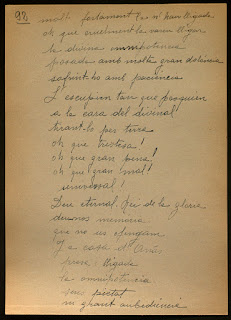 98
molt fortament
oh que cruelment la van lligar
la divina omnipotencia
posada amb molta gran dolencia
sofrint-ho amb paciencia
L'escupien tan que pogueren
a la cara del divinal
tirant-lo per terra
oh que tristesa!
oh que gran pena!
oh que gran mal!
universal!
Deu eternal Rei de la gloria
deu-nos memoria
que no us ofengam
I a casa d'Anás
presa i lligada
la omnipotencia
per pietat
in grant aubediencia